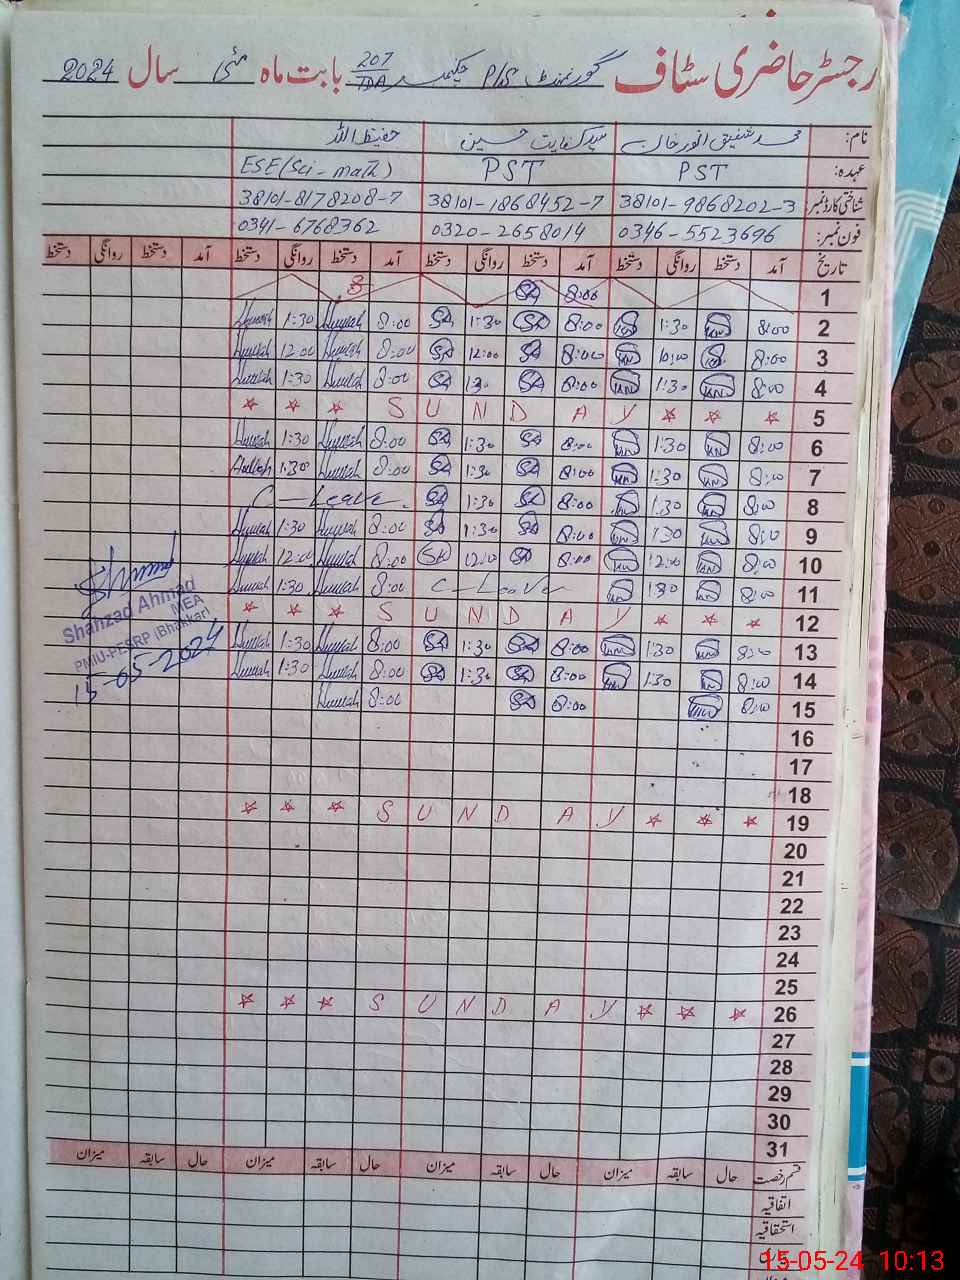 رجسٹر حاضری سٹاف گورنمنٹ P/S چکنمبر 207/TDA بابت ماہ مئی سال 2024
نام: محمد شفیق انور خان سید کفایت حسین حفیظ اللہ
عہدہ: PST PST ESE (Sci-math)
شناختی کارڈ نمبر: 38101-9868202-3 38101-1868452-7 38101-8178208-7
فون نمبر: 0346-5523696 0320-2658014 0341-6768362
تاریخ آمد دستخط روانگی دستخط آمد دستخط روانگی دستخط آمد دستخط روانگی دستخط آمد دستخط روانگی دستخط
1 8:00 SA
2 8:00 1:30 8:00 SA 1:30 SA 8:00 1:30
3 8:00 10:00 8:00 SA 12:00 SA 8:00 12:00
4 8:00 1:30 8:00 SA 1:30 SA 8:00 1:30
☆ ☆ ☆ S U N D A Y ☆ ☆ ☆ 5
6 8:00 1:30 8:00 SA 1:30 SA 8:00 1:30
7 8:00 1:30 8:00 SA 1:30 SA 8:00 1:30
8 8:00 1:30 8:00 SA 1:30 SA C-Leave
9 8:00 1:30 8:00 SA 1:30 SA 8:00 1:30
10 8:00 12:00 8:00 SA 12:00 SA 8:00 12:00
11 8:00 1:30 C-Leave 8:00 1:30
☆ ☆ ☆ S U N D A Y ☆ ☆ ☆ 12
13 8:00 1:30 8:00 SA 1:30 SA 8:00 1:30
14 8:00 1:30 8:00 SA 1:30 SA 8:00 1:30
15 8:00 8:00 SA 8:00
16
17
18
☆ ☆ ☆ S U N D A Y ☆ ☆ ☆ 19
20
21
22
23
24
25
☆ ☆ ☆ S U N D A Y ☆ ☆ ☆ 26
27
28
29
30
31
قسم رخصت حال سابقہ میزان حال سابقہ میزان حال سابقہ میزان حال سابقہ میزان
اتفاقیہ
استحقاقیہ
Shahzad Ahmad
MEA
PMIU-PESRP (Bhakkar)
15-05-2024
15-05-24 10:13